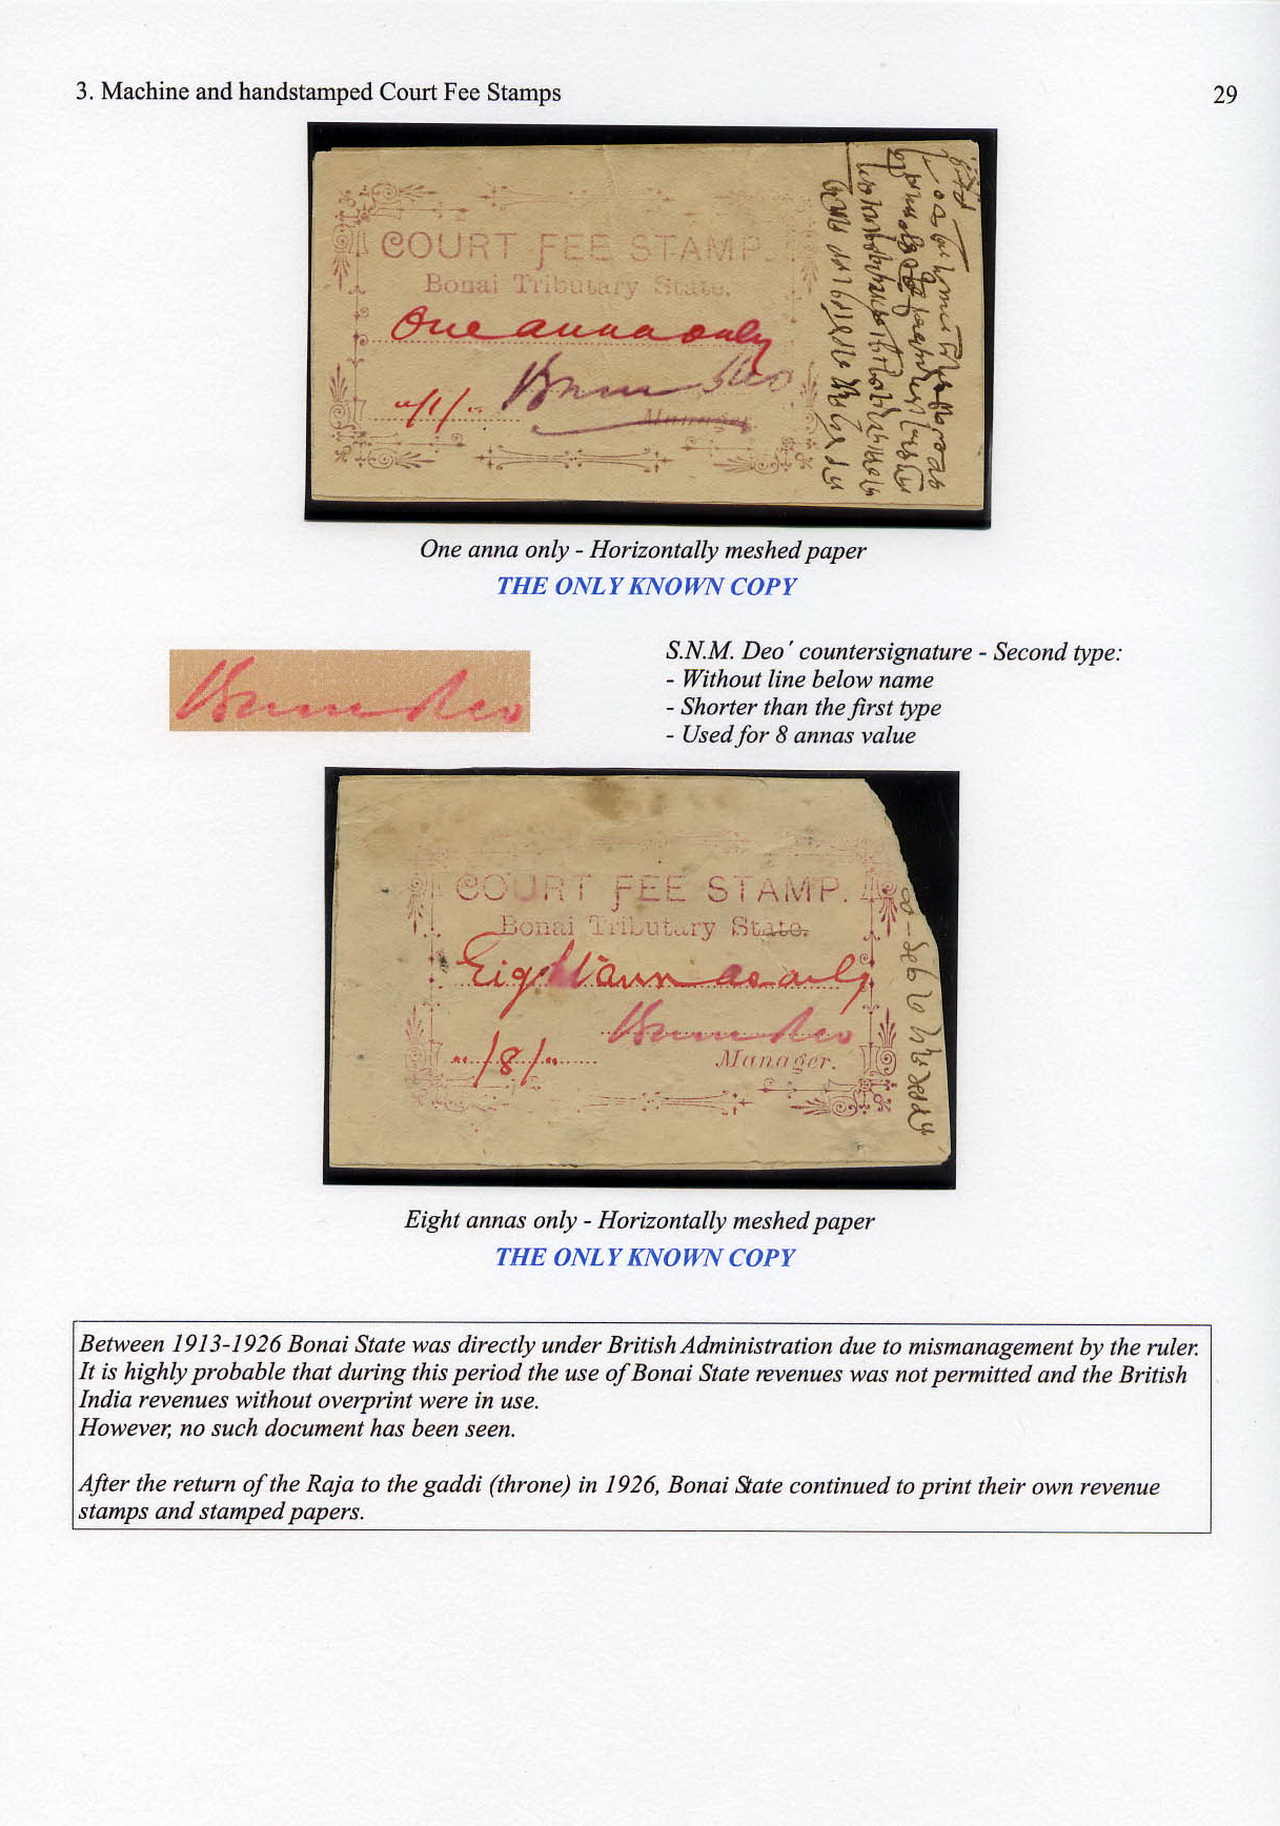 3. Machine and handstamped Court Fee Stamps
29
COURT FEE STAMP.
Bonai Tributary State.
One anna only
"/1/"
Deo
Manager.
One anna only - Horizontally meshed paper
THE ONLY KNOWN COPY
Deo
S.N.M. Deo´ countersignature - Second type:
- Without line below name
- Shorter than the first type
- Used for 8 annas value
COURT FEE STAMP.
Bonai Tributary State.
Eight annas only
"/8/"
Deo
Manager.
Eight annas only - Horizontally meshed paper
THE ONLY KNOWN COPY
Between 1913-1926 Bonai State was directly under British Administration due to mismanagement by the ruler.
It is highly probable that during this period the use of Bonai State revenues was not permitted and the British
India revenues without overprint were in use.
However, no such document has been seen.
After the return of the Raja to the gaddi (throne) in 1926, Bonai State continued to print their own revenue
stamps and stamped papers.